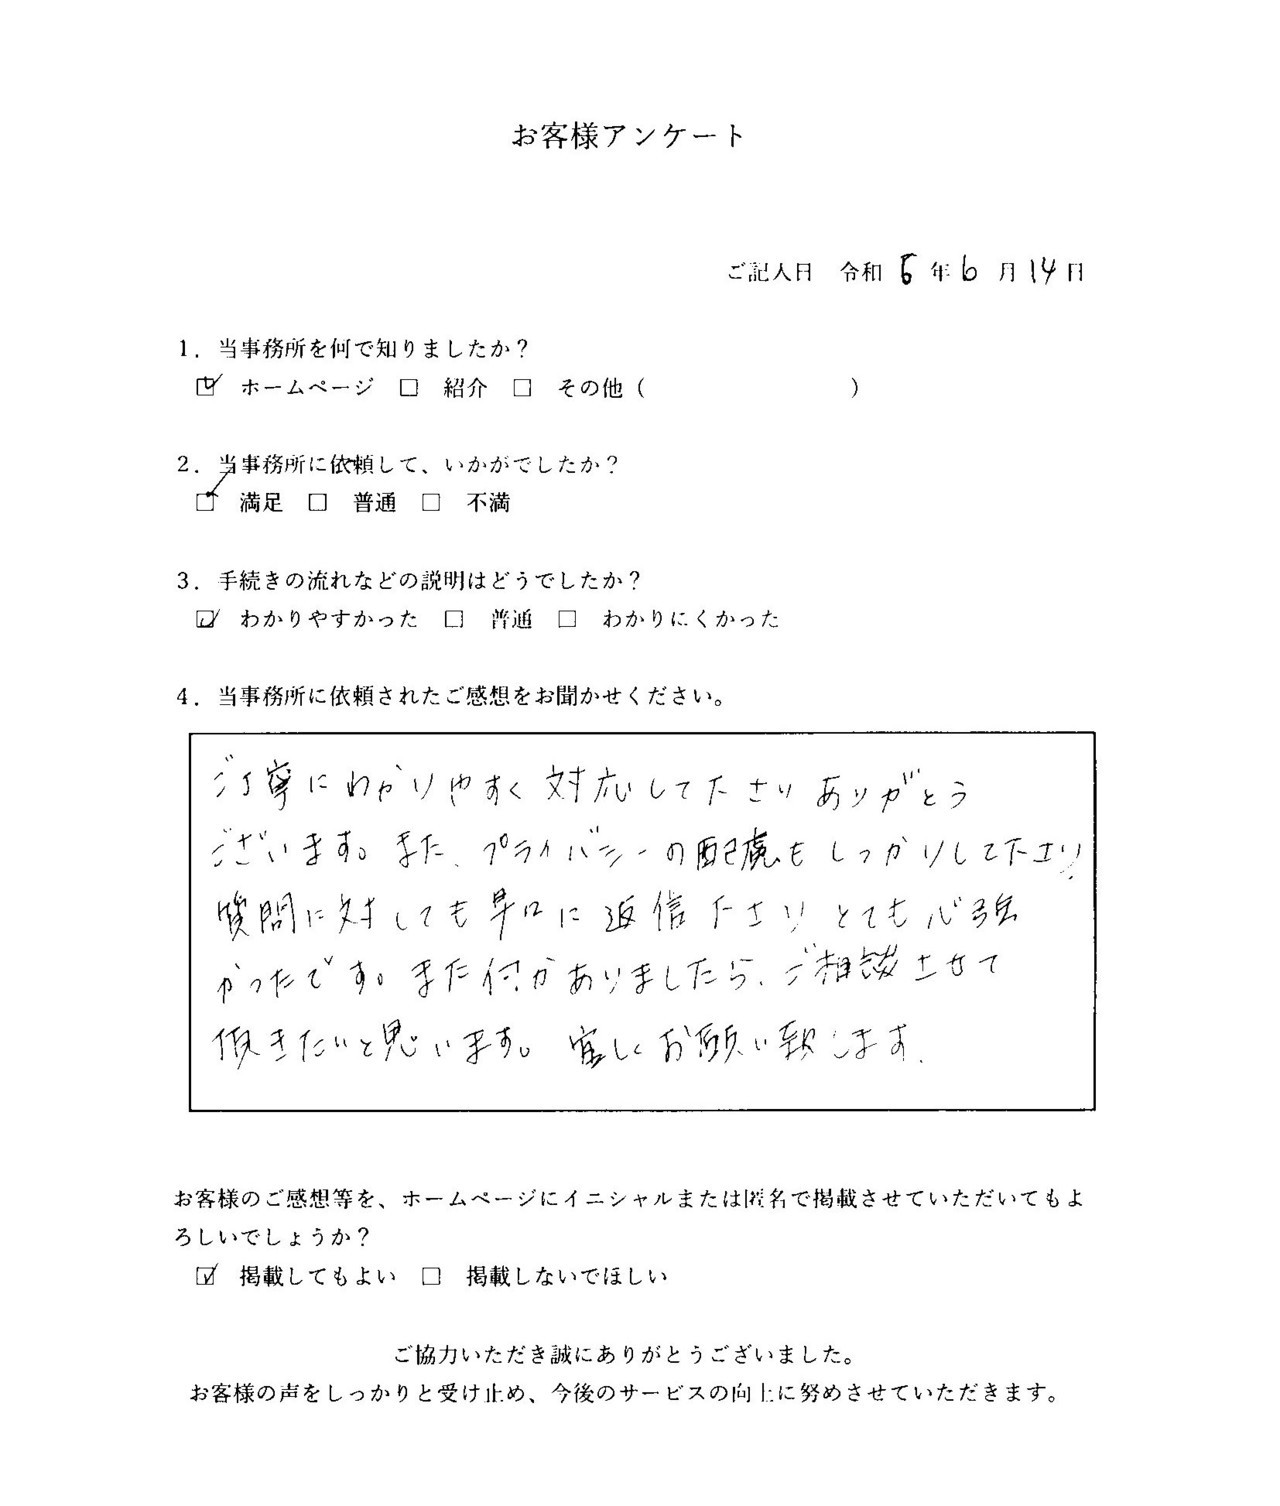 お客様アンケート
ご記入日 令和 6 年 6 月 14 日
1．当事務所を何で知りましたか？
☑ ホームページ □ 紹介 □ その他（ ）
2．当事務所に依頼して、いかがでしたか？
☑ 満足 □ 普通 □ 不満
3．手続きの流れなどの説明はどうでしたか？
☑ わかりやすかった □ 普通 □ わかりにくかった
4．当事務所に依頼されたご感想をお聞かせください。
ご丁寧にわかりやすく対応して下さりありがとう
ございます。また、プライバシーの配慮もしっかりして下さり
質問に対しても早口に返信下さりとても心強
かったです。また何かありましたら、ご相談させて
頂きたいと思います。宜しくお願い致します。
お客様のご感想等を、ホームページにイニシャルまたは匿名で掲載させていただいてもよ
ろしいでしょうか？
☑ 掲載してもよい □ 掲載しないでほしい
ご協力いただき誠にありがとうございました。
お客様の声をしっかりと受け止め、今後のサービスの向上に努めさせていただきます。